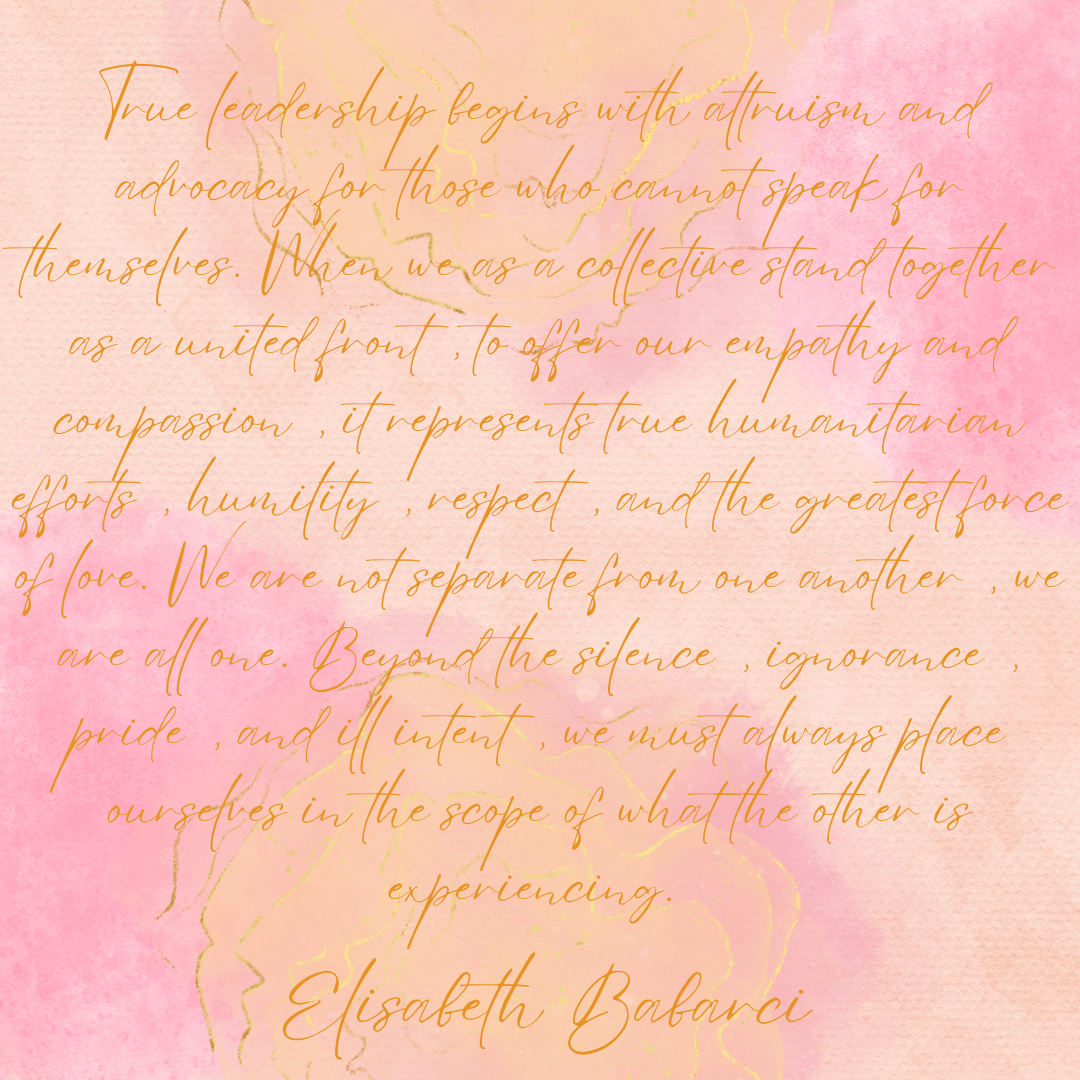 True leadership begins with altruism and
advocacy for those who cannot speak for
themselves. When we as a collective stand together
as a united front , to offer our empathy and
compassion , it represents true humanitarian
efforts , humility , respect , and the greatest force
of love. We are not separate from one another , we
are all one. Beyond the silence , ignorance ,
pride , and ill intent , we must always place
ourselves in the scope of what the other is
experiencing.
Elisabeth Babarci